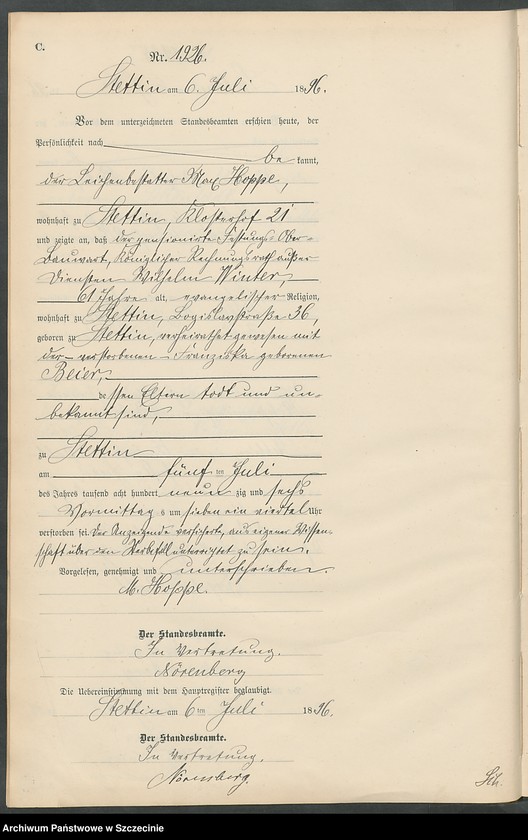 C.
Nr. 1926.
Stettin am 6. Juli 1896.
Vor dem unterzeichneten Standesbeamten erschien heute, der
Persönlichkeit nach
bekannt,
der Leichenbestatter Max Hoppe,
wohnhaft zu Stettin, Klosterhof 21
und zeigte an, daß der pensionirte Festungs-Ober-
Bauwart, Königlicher Rechnungsrath außer
Diensten Wilhelm Winter,
61 Jahre alt, evangelischer Religion,
wohnhaft zu Stettin, Bogislavstraße 36,
geboren zu Stettin, verheirathet gewesen mit
der verstorbenen Franziska geborenen
Beier,
dessen Eltern todt und un-
bekannt sind,
zu Stettin
am fünften Juli
des Jahres tausend acht hundert neunzig und sechs
Vormittags um sieben ein viertel Uhr
verstorben sei. Der Anzeigende versicherte, aus eigener Wissen-
schaft über den Sterbefall unterrichtet zu sein.
Vorgelesen, genehmigt und unterschrieben.
M. Hoppe.
Der Standesbeamte.
In Vertretung.
Nörenberg
Die Uebereinstimmung mit dem Hauptregister beglaubigt.
Stettin am 6ten Juli 1896.
Der Standesbeamte.
In Vertretung.
Nörenberg.
Archiwum Państwowe w Szczecinie